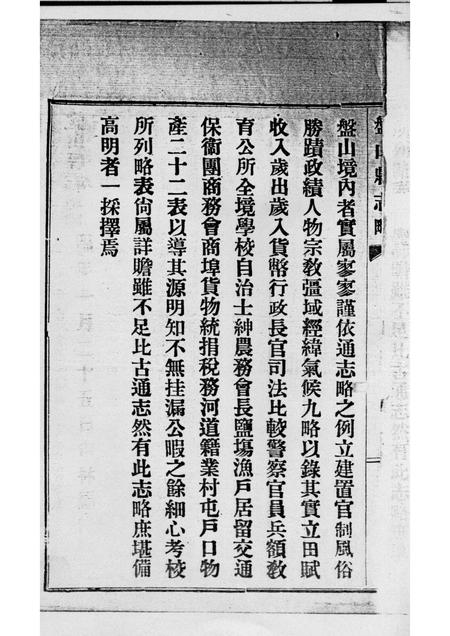 盤山縣志略
盤山境內者實屬寥寥謹依通志略之例立建置官制風俗
勝蹟政績人物宗敎彊域經緯氣候九略以錄其實立田賦
收入歲出歲入貨幣行政長官司法比較警察官員兵額敎
育公所全境學校自治士紳農務會長鹽塲漁戶居留交通
保衞團商務會商埠貨物統捐稅務河道籍業村屯戶口物
產二十二表以導其源明知不無挂漏公暇之餘細心考校
所列略表尙屬詳贍雖不足比古通志然有此志略庶堪備
高明者一採擇焉
一